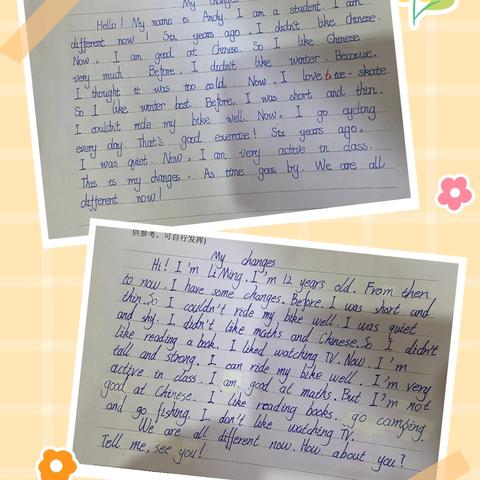 My changes
Hello! My name is Andy. I am a student. I am
different now! Six years ago, I didn't like Chinese.
Now, I am good at Chinese. So I like Chinese
very much. Before, I didn't like winter. Because,
I thought it was too cold. Now, I love to ice-skate.
So I like winter best. Before, I was short and thin.
I couldn't ride my bike well. Now, I go cycling
every day. That's good exercise! Six years ago,
I was quiet. Now, I am very active in class.
This is my changes. As time goes by. We are all
different now!
供参考,可自行发挥)
My changes
Hi! I'm Li Ming. I'm 12 years old. From then
to now. I have some changes. Before, I was short and
thin. So I couldn't ride my bike well. I was quiet
and shy. I didn't like maths and Chinese. So I didn't
like reading a book. I liked watching TV. Now. I'm
tall and strong. I can ride my bike well. I'm very
active in class. I am good at maths. But I'm not
good at Chinese. I like reading books, go camping
and go fishing. I don't like watching TV.
We are all different now. How about you?
Tell me, see you!